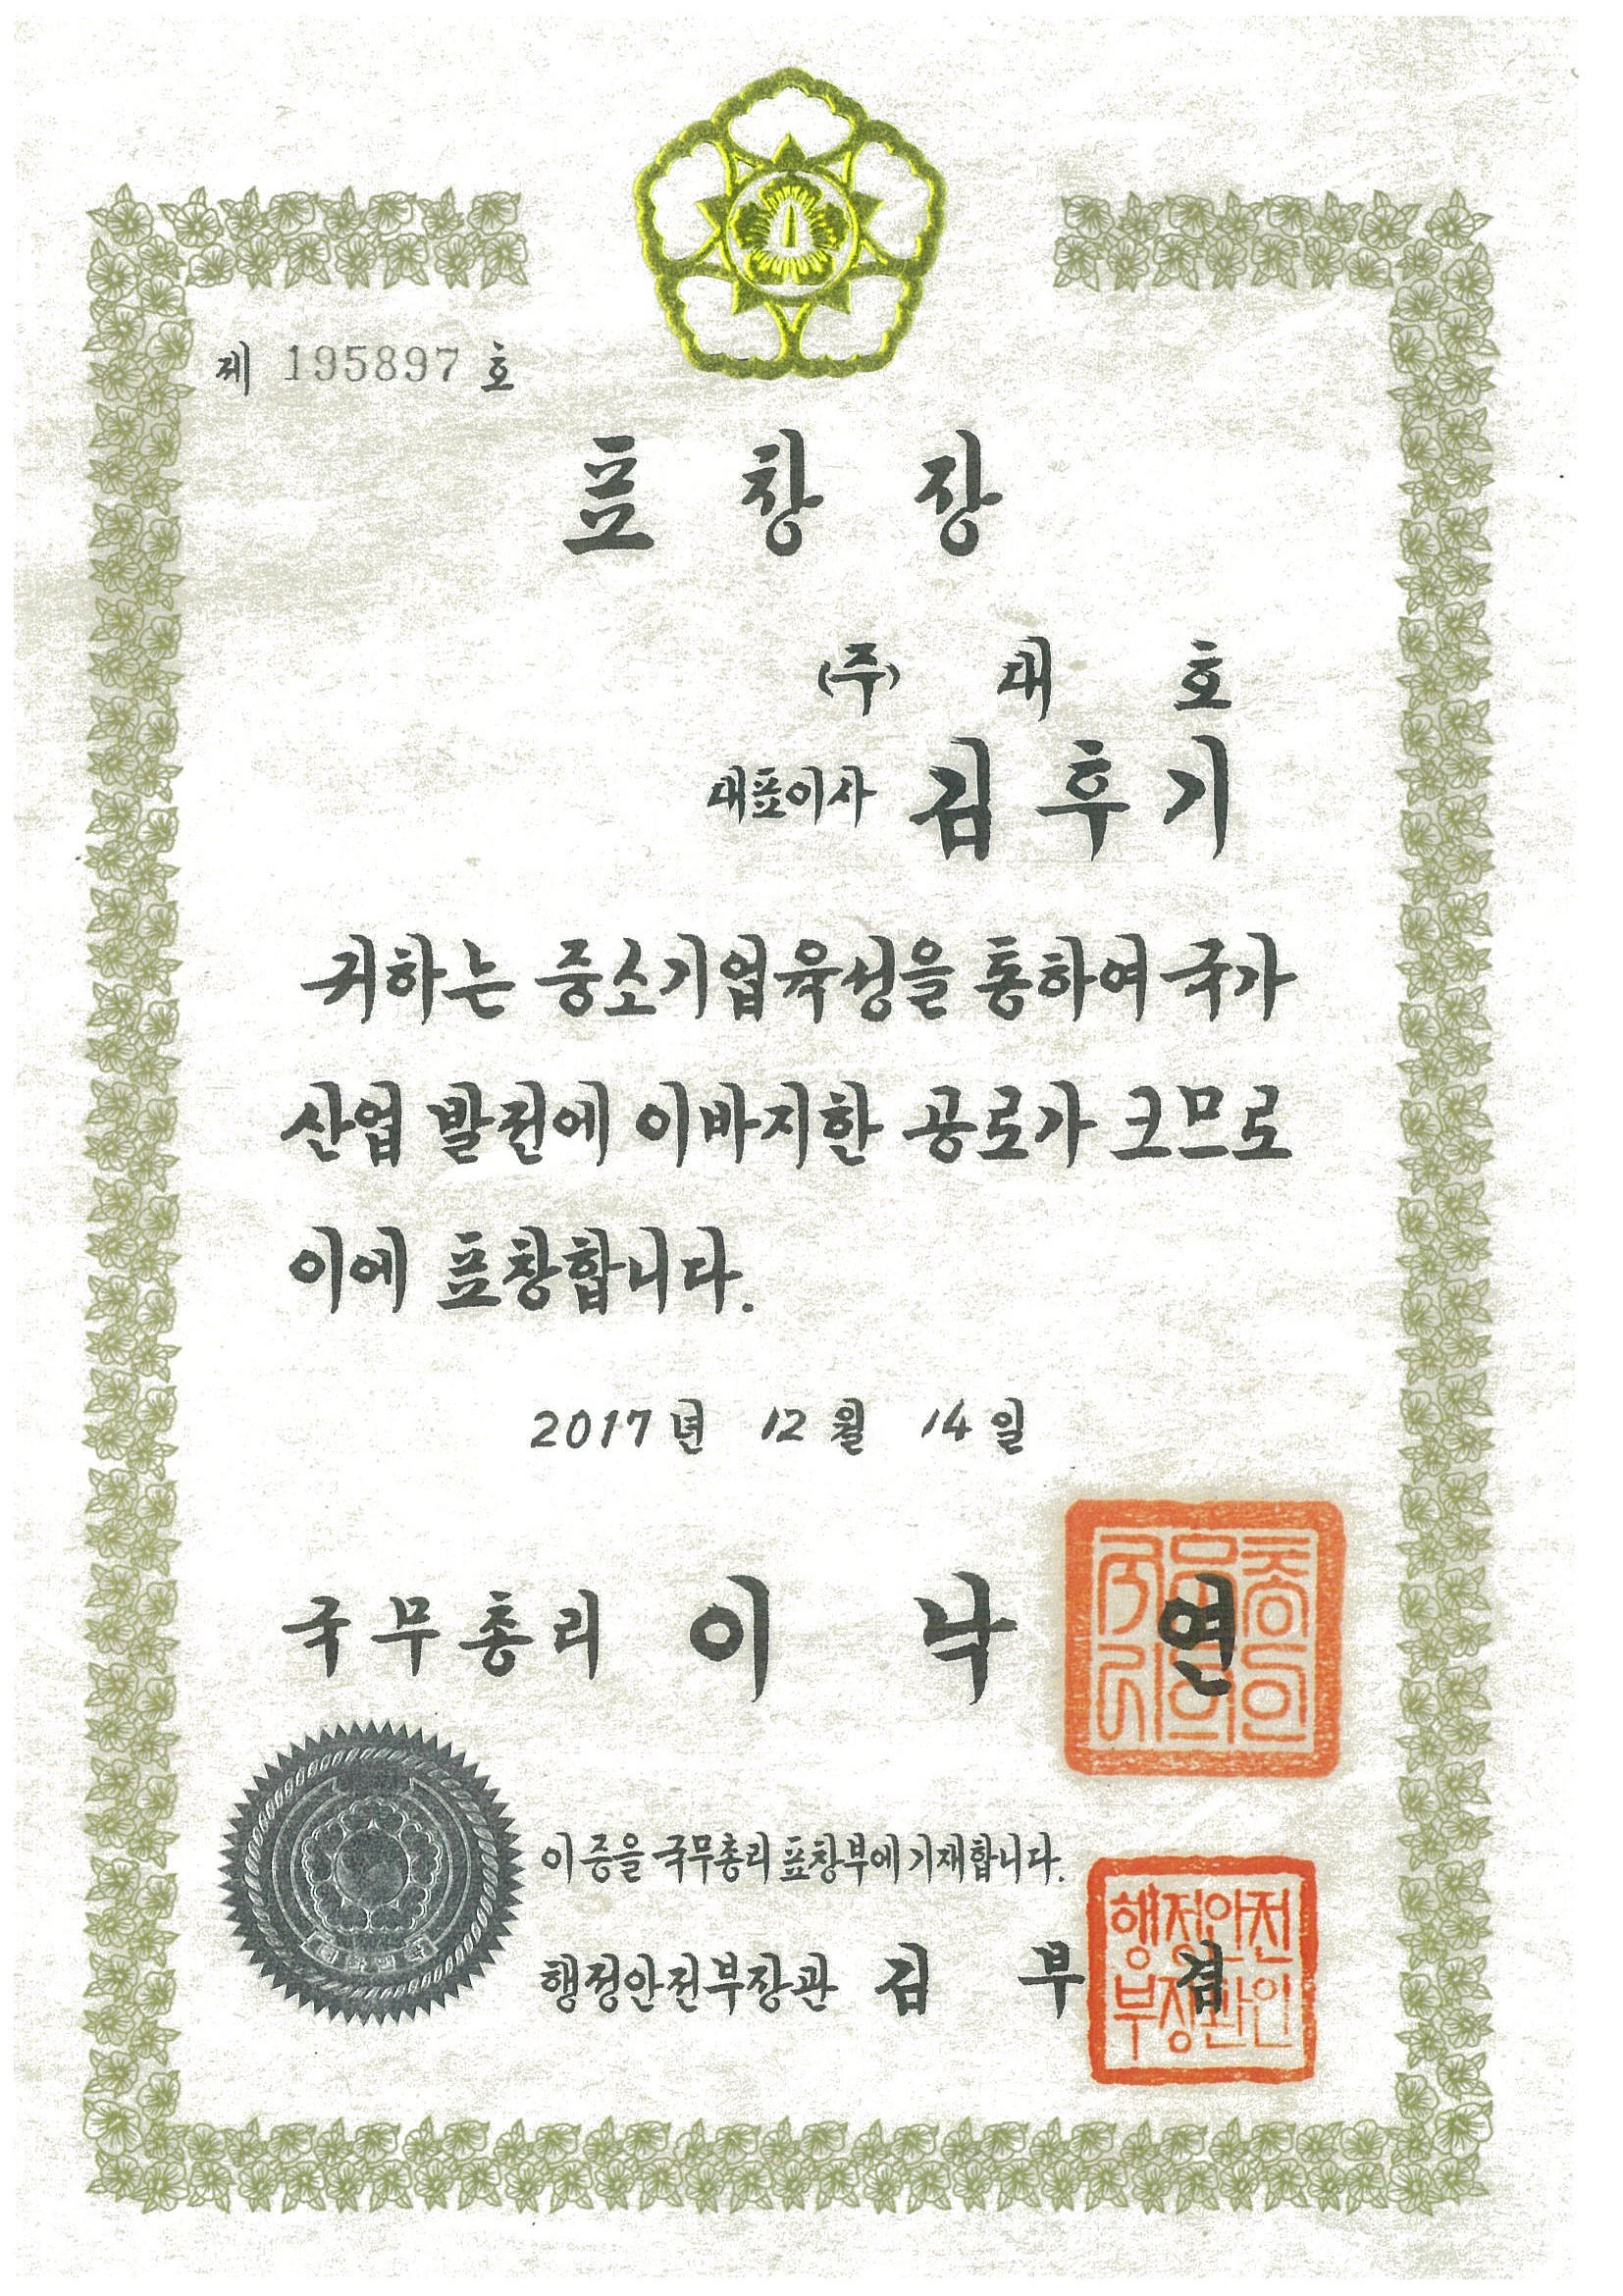 제 195897 호
표 창 장
(주) 대 호
대표이사 김후기
귀하는 중소기업육성을 통하여 국가
산업 발전에 이바지한 공로가 크므로
이에 표창합니다.
2017년 12월 14일
국무총리 이 낙 연
이 증을 국무총리 표창부에 기재합니다.
행정안전부장관 김 부 겸
행정안전
부장관인